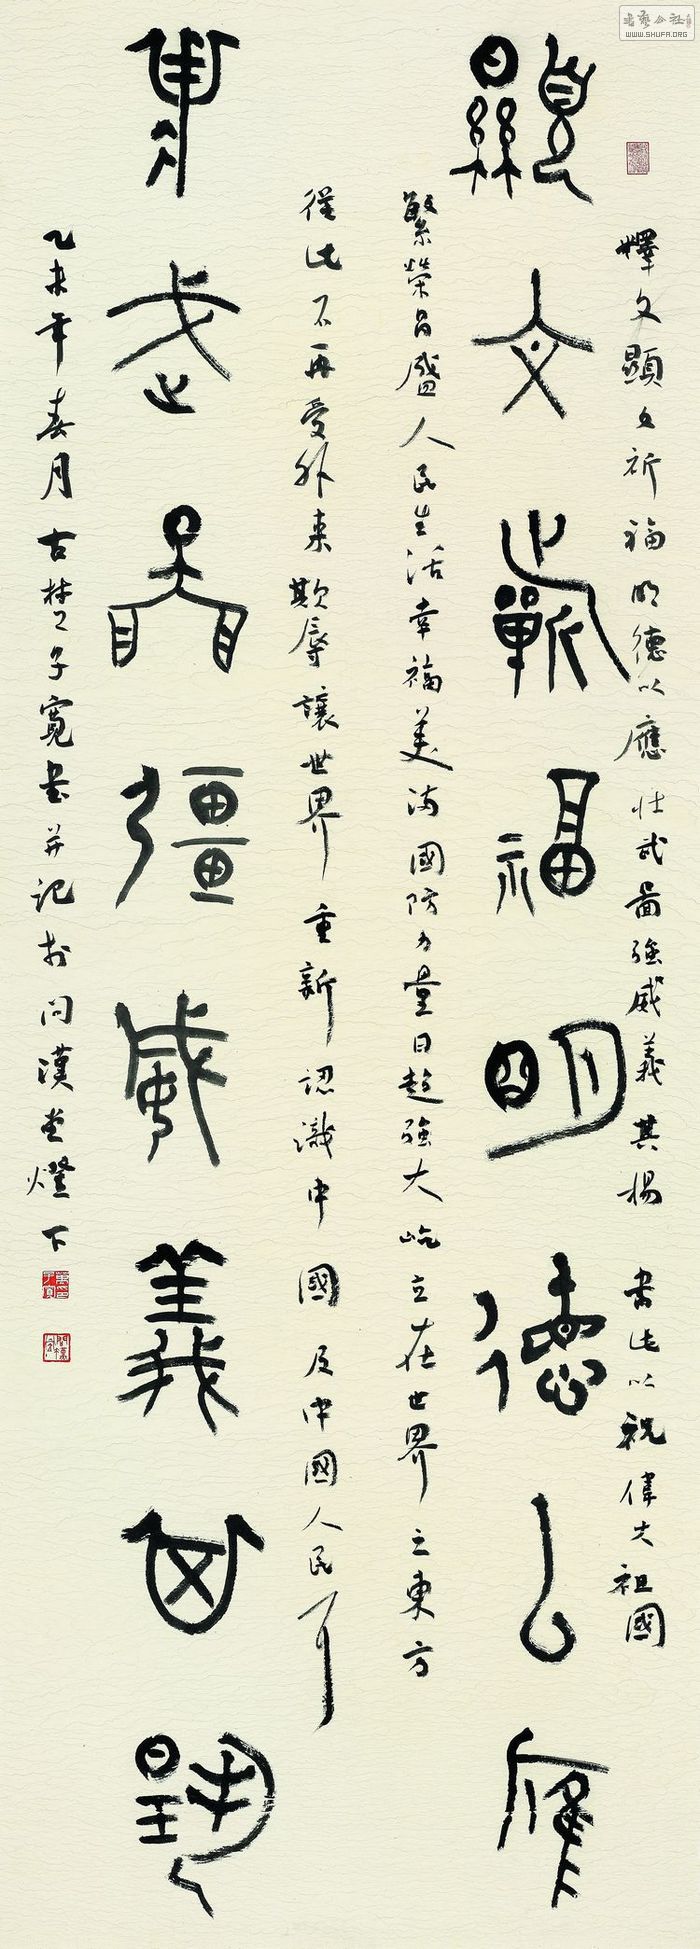 顯文蘄福明德以雁
釋文顯文祈福明德以應壯武啚強威義其揚 書此以祝偉大祖國
繁榮昌盛人民生活幸福美滿國防力量日趋強大屹立在世界之東方
從此不再受外來欺辱讓世界重新認識中國及中國人民可
武啚彊威義其揚
乙未年春月古楚子寬書并記於問漢堂燈下
書藝公社
WWW.SHUFA.ORG